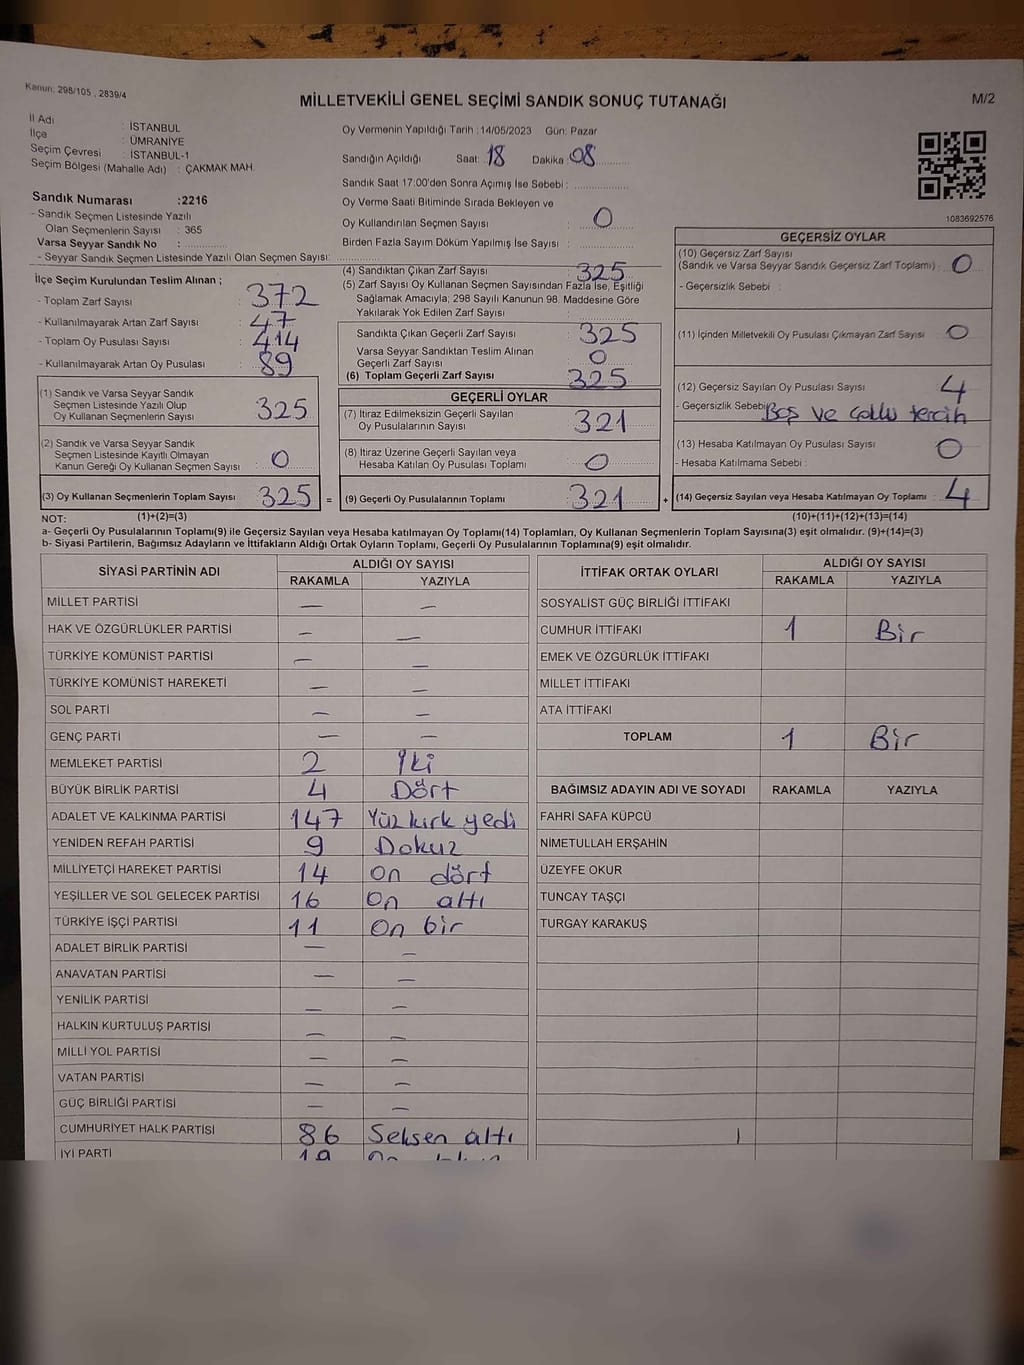 Kanun: 298/105 , 2839/4
MİLLETVEKİLİ GENEL SEÇİMİ SANDIK SONUÇ TUTANAĞI
M/2
İl Adı : İSTANBUL
İlçe : ÜMRANİYE
Seçim Çevresi : İSTANBUL-1
Seçim Bölgesi (Mahalle Adı) : ÇAKMAK MAH.
Oy Vermenin Yapıldığı Tarih : 14/05/2023 Gün: Pazar
Sandığın Açıldığı Saat: 18 Dakika: 08
Sandık Saat 17:00'den Sonra Açımış İse Sebebi :
Oy Verme Saati Bitiminde Sırada Bekleyen ve
Oy Kullandırılan Seçmen Sayısı : 0
Birden Fazla Sayım Döküm Yapılmış İse Sayısı :
1083692576
Sandık Numarası :2216
- Sandık Seçmen Listesinde Yazılı
Olan Seçmenlerin Sayısı : 365
Varsa Seyyar Sandık No :
- Seyyar Sandık Seçmen Listesinde Yazılı Olan Seçmen Sayısı:
İlçe Seçim Kurulundan Teslim Alınan ;
- Toplam Zarf Sayısı : 372
- Kullanılmayarak Artan Zarf Sayısı : 47
- Toplam Oy Pusulası Sayısı : 414
- Kullanılmayarak Artan Oy Pusulası : 89
(1) Sandık ve Varsa Seyyar Sandık
Seçmen Listesinde Yazılı Olup
Oy Kullanan Seçmenlerin Sayısı : 325
(2) Sandık ve Varsa Seyyar Sandık
Seçmen Listesinde Kayıtlı Olmayan
Kanun Gereği Oy Kullanan Seçmen Sayısı : 0
(3) Oy Kullanan Seçmenlerin Toplam Sayısı : 325 =
(4) Sandıktan Çıkan Zarf Sayısı : 325
(5) Zarf Sayısı Oy Kullanan Seçmen Sayısından Fazla İse, Eşitliği
Sağlamak Amacıyla; 298 Sayılı Kanunun 98. Maddesine Göre
Yakılarak Yok Edilen Zarf Sayısı :
Sandıkta Çıkan Geçerli Zarf Sayısı : 325
Varsa Seyyar Sandıktan Teslim Alınan
Geçerli Zarf Sayısı : 0
(6) Toplam Geçerli Zarf Sayısı : 325
GEÇERLİ OYLAR
(7) İtiraz Edilmeksizin Geçerli Sayılan
Oy Pusulalarının Sayısı : 321
(8) İtiraz Üzerine Geçerli Sayılan veya
Hesaba Katılan Oy Pusulası Toplamı : 0
(9) Geçerli Oy Pusulalarının Toplamı : 321 +
GEÇERSİZ OYLAR
(10) Geçersiz Zarf Sayısı
(Sandık ve Varsa Seyyar Sandık Geçersiz Zarf Toplamı) : 0
- Geçersizlik Sebebi :
(11) İçinden Milletvekili Oy Pusulası Çıkmayan Zarf Sayısı : 0
(12) Geçersiz Sayılan Oy Pusulası Sayısı : 4
- Geçersizlik Sebebi: Boş ve çoklu tercih
(13) Hesaba Katılmayan Oy Pusulası Sayısı : 0
- Hesaba Katılmama Sebebi :
(14) Geçersiz Sayılan veya Hesaba Katılmayan Oy Toplamı : 4
NOT: (1)+(2)=(3) (10)+(11)+(12)+(13)=(14)
a- Geçerli Oy Pusulalarının Toplamı(9) ile Geçersiz Sayılan veya Hesaba katılmayan Oy Toplamı(14) Toplamları, Oy Kullanan Seçmenlerin Toplam Sayısına(3) eşit olmalıdır. (9)+(14)=(3)
b- Siyasi Partilerin, Bağımsız Adayların ve İttifakların Aldığı Ortak Oyların Toplamı, Geçerli Oy Pusulalarının Toplamına(9) eşit olmalıdır.
SİYASİ PARTİNİN ADI ALDIĞI OY SAYISI
RAKAMLA YAZIYLA
MİLLET PARTİSİ — —
HAK VE ÖZGÜRLÜKLER PARTİSİ — —
TÜRKİYE KOMÜNİST PARTİSİ — —
TÜRKİYE KOMÜNİST HAREKETİ — —
SOL PARTİ — —
GENÇ PARTİ — —
MEMLEKET PARTİSİ 2 İki
BÜYÜK BİRLİK PARTİSİ 4 Dört
ADALET VE KALKINMA PARTİSİ 147 Yüz kırk yedi
YENİDEN REFAH PARTİSİ 9 Dokuz
MİLLİYETÇİ HAREKET PARTİSİ 14 On dört
YEŞİLLER VE SOL GELECEK PARTİSİ 16 On altı
TÜRKİYE İŞÇİ PARTİSİ 11 On bir
ADALET BİRLİK PARTİSİ — —
ANAVATAN PARTİSİ — —
YENİLİK PARTİSİ — —
HALKIN KURTULUŞ PARTİSİ — —
MİLLİ YOL PARTİSİ — —
VATAN PARTİSİ — —
GÜÇ BİRLİĞİ PARTİSİ — —
CUMHURİYET HALK PARTİSİ 86 Seksen altı
İYİ PARTİ
İTTİFAK ORTAK OYLARI ALDIĞI OY SAYISI
RAKAMLA YAZIYLA
SOSYALİST GÜÇ BİRLİĞİ İTTİFAKI
CUMHUR İTTİFAKI 1 Bir
EMEK VE ÖZGÜRLÜK İTTİFAKI
MİLLET İTTİFAKI
ATA İTTİFAKI
TOPLAM 1 Bir
BAĞIMSIZ ADAYIN ADI VE SOYADI RAKAMLA YAZIYLA
FAHRİ SAFA KÜPCÜ
NİMETULLAH ERŞAHİN
ÜZEYFE OKUR
TUNCAY TAŞÇI
TURGAY KARAKUŞ